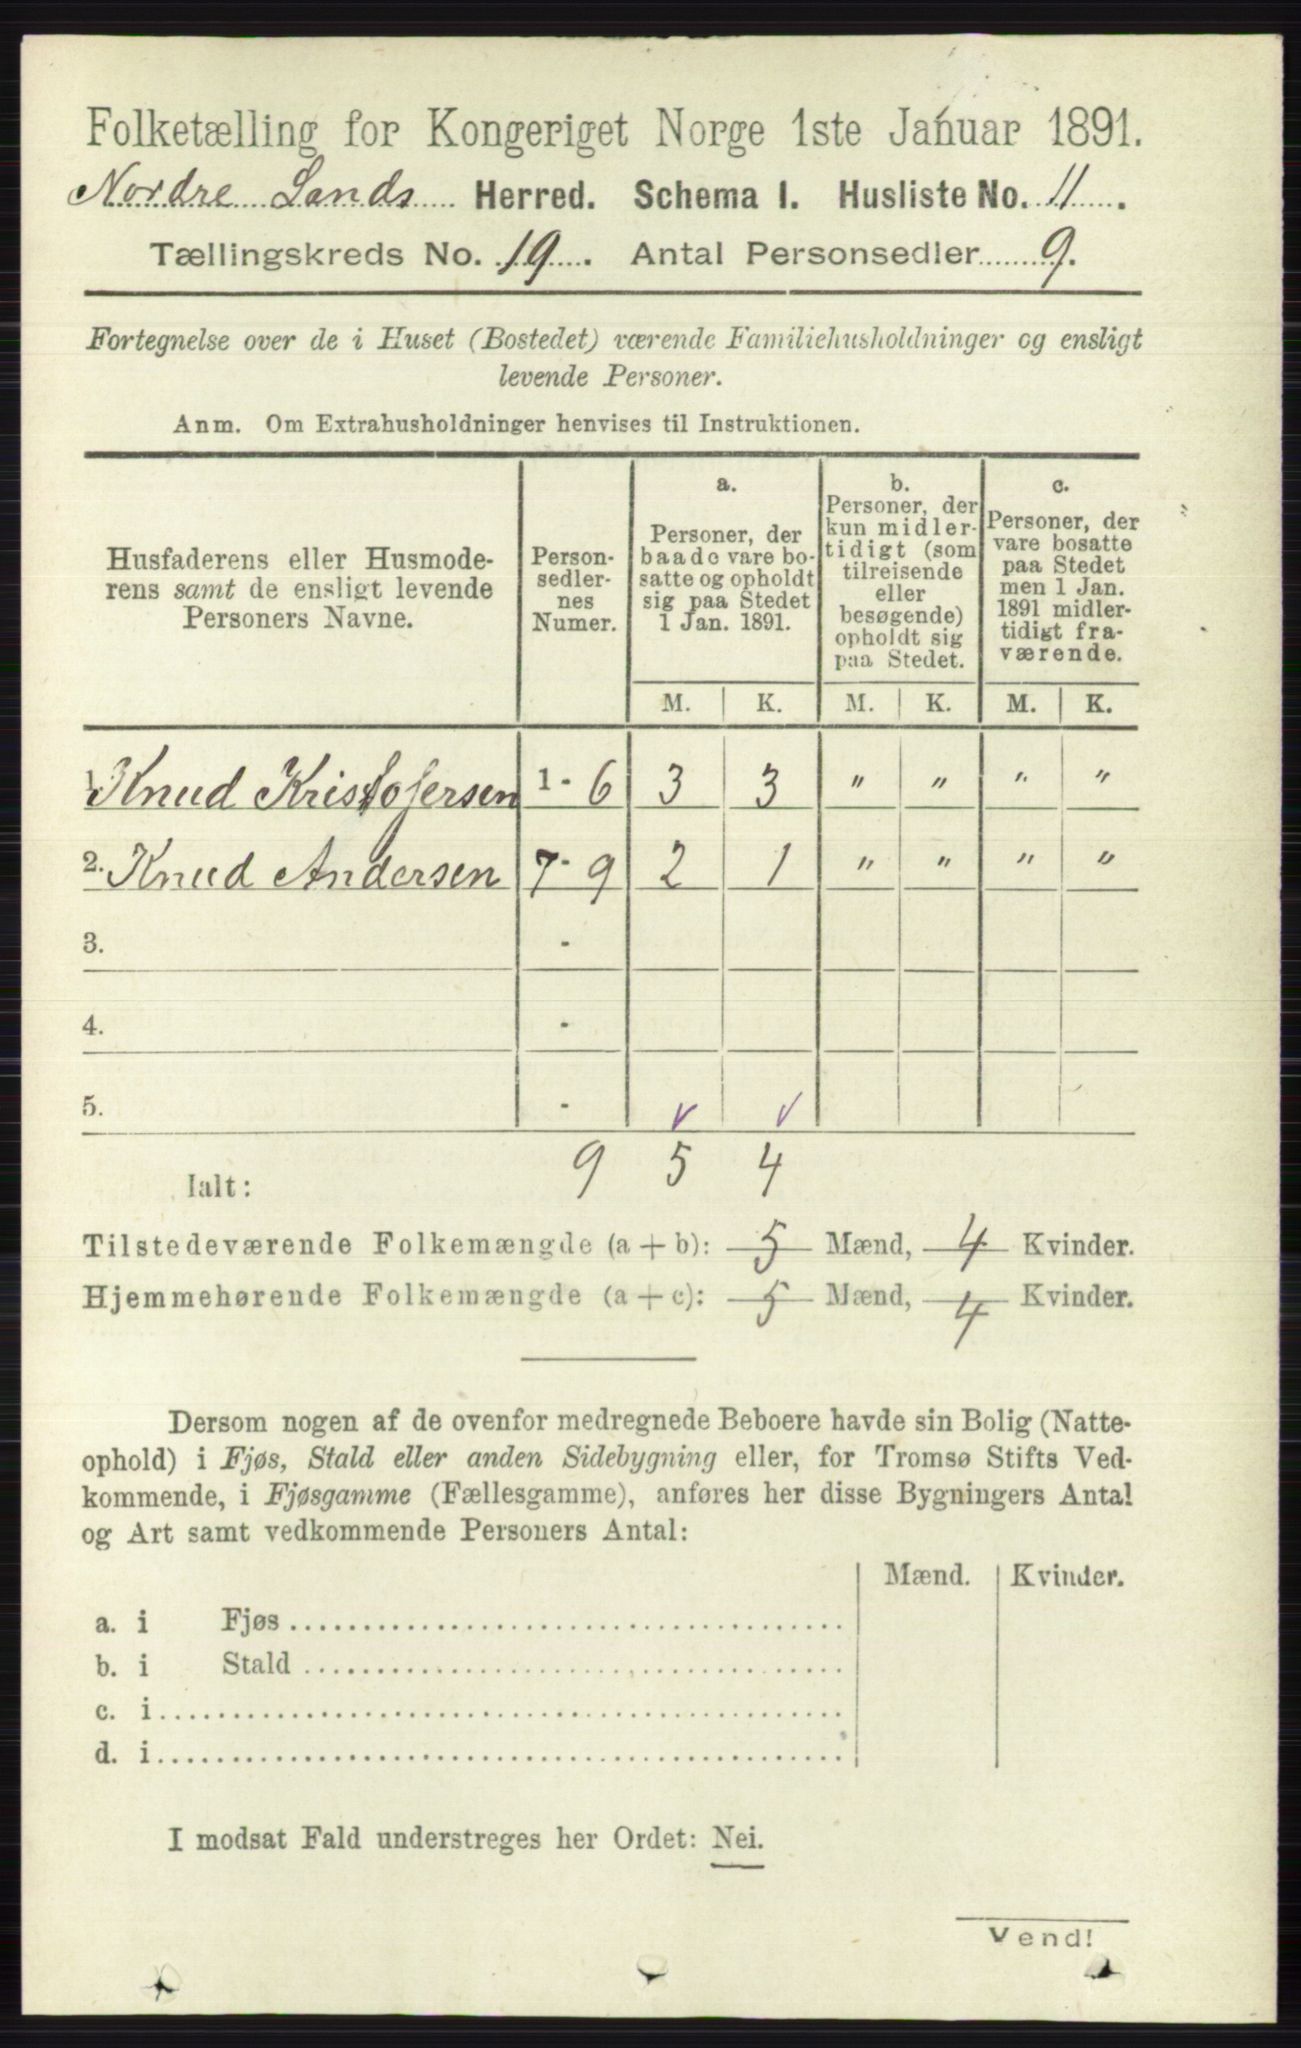 Folketælling for Kongeriget Norge 1ste Januar 1891.
Nordre Lands Herred. Schema I. Husliste No. 11.
Tællingskreds No. 19. Antal Personsedler 9.
Fortegnelse over de i Huset (Bostedet) værende Familiehusholdninger og ensligt
levende Personer.
Anm. Om Extrahusholdninger henvises til Instruktionen.
Husfaderens eller Husmode-
rens samt de ensligt levende
Personers Navne.
Person-
sedler-
nes
Numer.
a.
Personer, der
baade vare bo-
satte og opholdt
sig paa Stedet
1 Jan. 1891.
b.
Personer, der
kun midler-
tidigt (som
tilreisende
eller
besøgende)
opholdt sig
paa Stedet.
c.
Personer, der
vare bosatte
paa Stedet
men 1 Jan.
1891 midler-
tidigt fra-
værende.
M. K. M. K. M. K.
1. Knud Kristofersen 1 - 6 3 3 " " " "
2. Knud Andersen 7 - 9 2 1 " " " "
3. -
4. -
5. -
Ialt: 9 5 4
Tilstedeværende Folkemængde (a + b): 5 Mænd, 4 Kvinder.
Hjemmehørende Folkemængde (a + c): 5 Mænd, 4 Kvinder.
Dersom nogen af de ovenfor medregnede Beboere havde sin Bolig (Natte-
ophold) i Fjøs, Stald eller anden Sidebygning eller, for Tromsø Stifts Ved-
kommende, i Fjøsgamme (Fællesgamme), anføres her disse Bygningers Antal
og Art samt vedkommende Personers Antal:
Mænd. Kvinder.
a. i Fjøs
b. i Stald
c. i
d. i
I modsat Fald understreges her Ordet: Nei.
Vend!